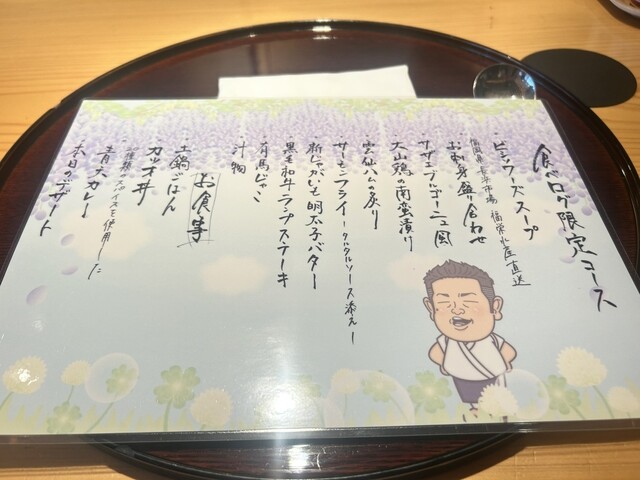 食べログ限定コース
ビシソワーズスープ
福岡県長浜市場 福栄水産直送
お刺身盛り合わせ
サザエブルゴーニュ風
大山鶏の南蛮漬け
雲仙ハムの炙り
サーモンフライ ータルタルソース添えー
新じゃがいも明太子バター
黒毛和牛ランプステーキ
有馬じゃこ
汁物
お食事
土鍋ごはん
カツオ丼
スパイスを使用した
青大カレー
本日のデザート